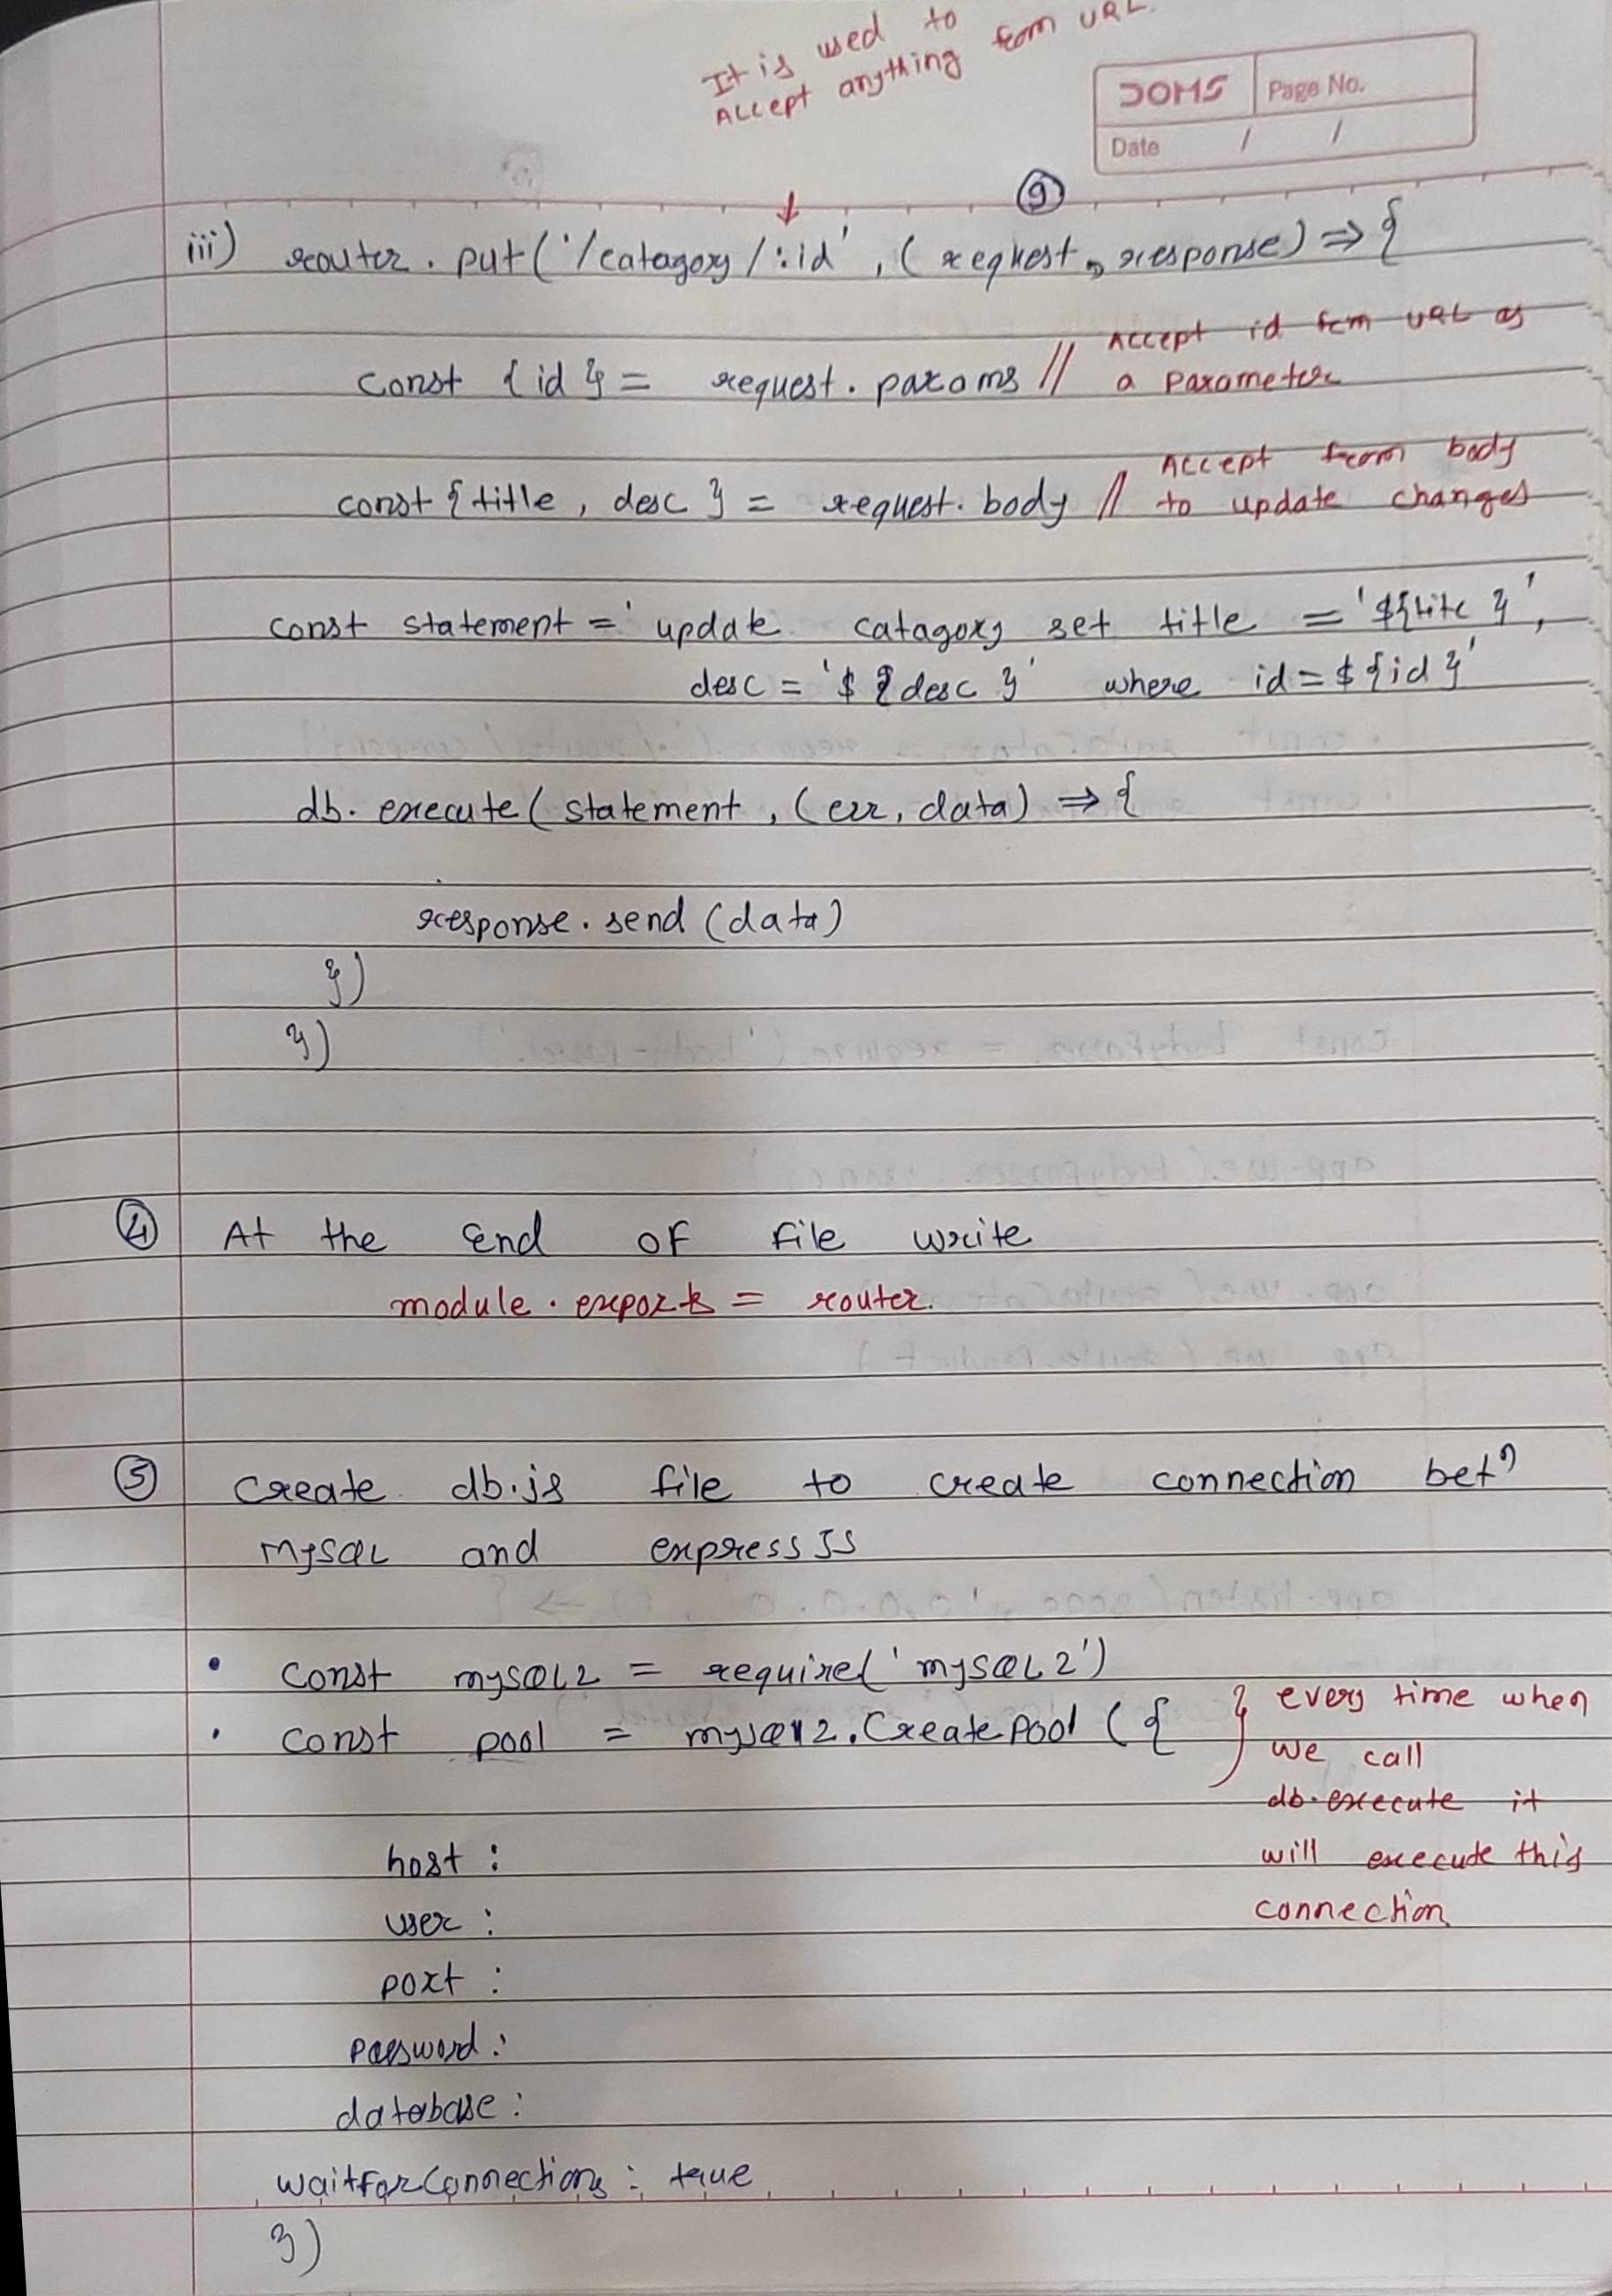 It is used to
Accept anything from URL.
DOMS Page No.
Date / /
9
iii) router.put('/catagory/:id', (request, response) => {
const {id} = request.params // Accept id frm URL as
a parameter
const {title, desc} = request.body // Accept from body
to update changes
const statement = ' update catagory set title = '${title}',
desc = '${desc}' where id=${id}'
db.execute(statement, (err, data) => {
response.send(data)
})
})
4 At the End of file write
module.exports = router.
5 Create db.js file to create connection betn
MySQL and express JS
• const mysql2 = require('mysql2')
• const pool = mysql2.CreatePool ({ } every time when
we call
db.execute it
host : will execute this
user : connection
port :
password :
database :
waitForConnections : true
})